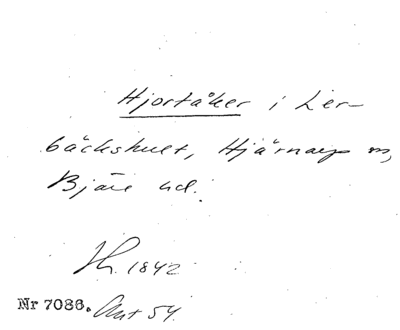 Hjortåker i Ler-
bäckshult, Hjärnarp sn,
Bjäre hd.
Jh. 1842
Nr 7086. Ant 54.